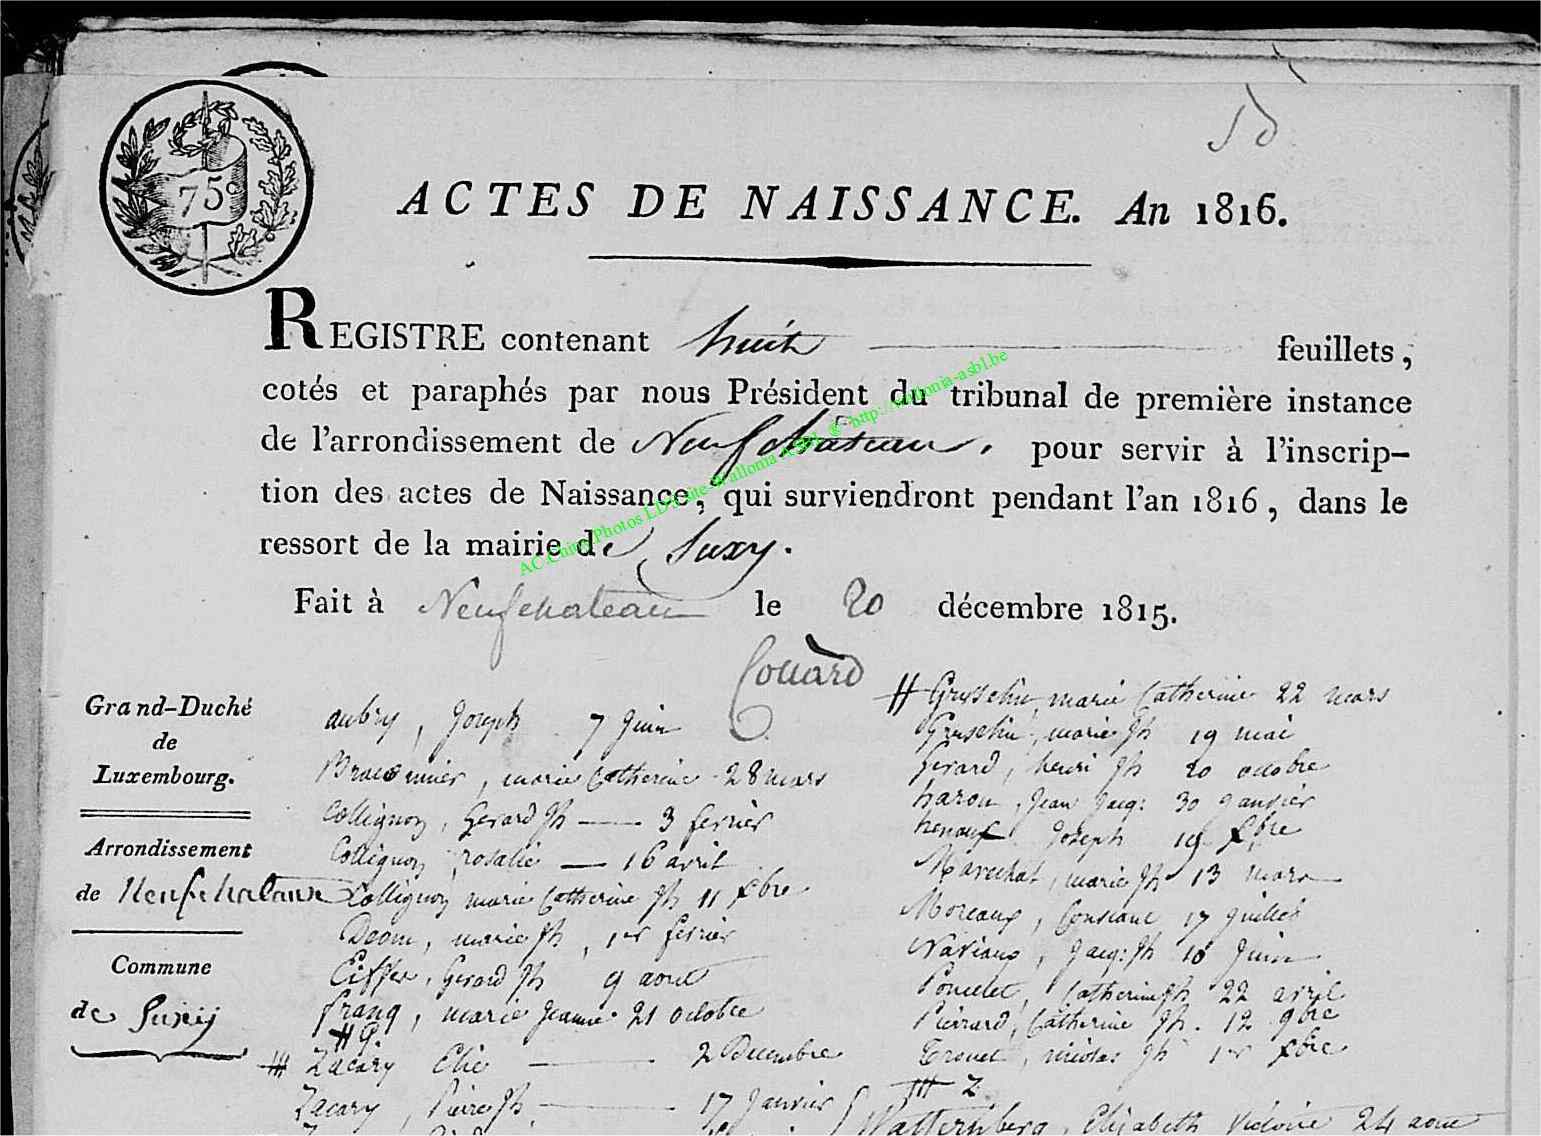 75c
ACTES DE NAISSANCE. An 1816.
REGISTRE contenant huit feuillets,
cotés et paraphés par nous Président du tribunal de première instance
de l'arrondissement de Neufchâteau. pour servir à l'inscrip-
tion des actes de Naissance, qui surviendront pendant l'an 1816, dans le
ressort de la mairie de Suxy.
Fait à Neufchateau le 20 décembre 1815.
Couard
Grand-Duché
de
Luxembourg.
Arrondissement
de Neufchateau
Commune
de Suxy
aubry, Joseph 7 Juin
Braconnier, marie Catherine 28 mars
Collignon, Gerard Jh 3 fevrier
Collignon, rosalie 16 avril
Collignon marie Catherine Jh 11 Xbre
Deom, marie Jh, 1er fevrier
Gerard Jh 9 aout
franq, marie Jeanne 21 octobre
# G
Zacary Elie 2 Decembre
Zacary, Pierre Jh 17 Janvier
# Grusselin, marie Catherine 22 mars
Gruselin, marie Jh 19 mai
Gerard, henri Jh 20 octobre
haron, Jean Jacq: 30 Janvier
Joseph 19 Xbre
Marechal, marie Jh 13 mars
Moreaux, Constant 17 Juillet
Naviaux, Jacq: Jh 10 Juin
Poncelet, Catherine Jh 22 avril
Pierrard, Catherine Jh. 12 9bre
nicolas Jh 1er Xbre
Z
Elisabeth Victoire 24 aout
AC Chiny Photos LD Suite Wallonia ASBL © http://wallonia-asbl.be